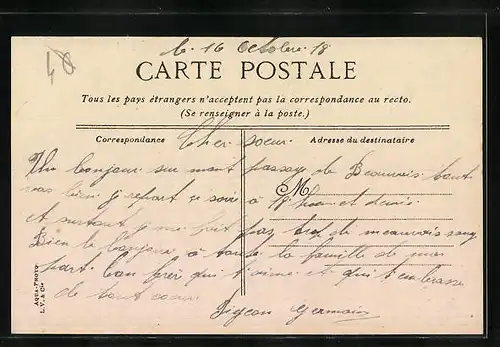 le. 16 Octobre. 18
40
CARTE POSTALE
Tous les pays étrangers n'acceptent pas la correspondance au recto.
(Se renseigner à la poste.)
Correspondance
Adresse du destinataire
Cher soeur
Un bonjour sur mont passage de Beauvais tout
vas bien j repart ce soir à 18 heur et demis
M
et surtout je me fait pas trop de meauvois sang
Bien le bonjour à toute la famille de mas
part. ton frer qui t'aime et qui t'embrasse
de tout coeur
Pigeon Germain
AQUA-PHOTO
L.V. & Cie